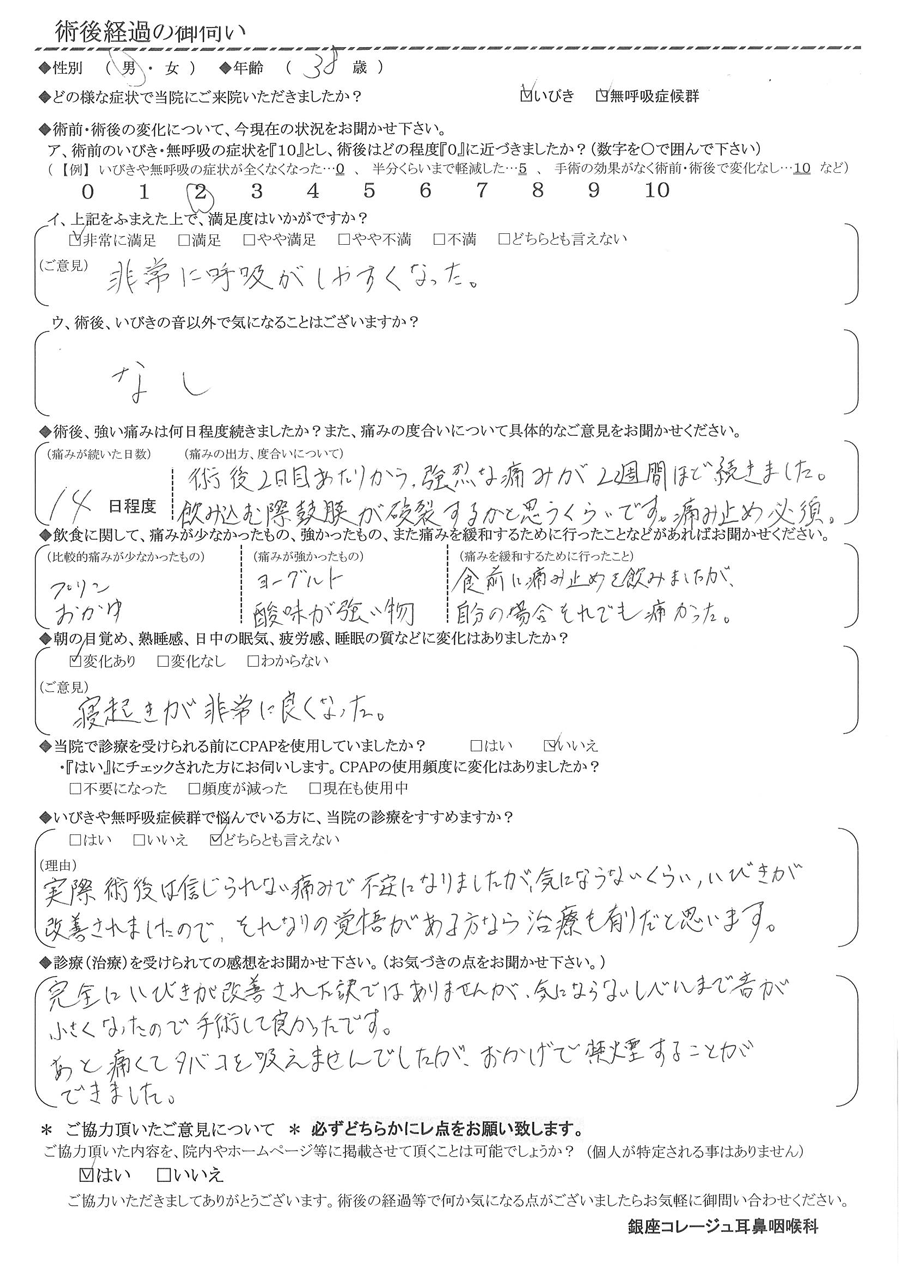 術後経過の御伺い
◆性別 （ 男 ・ 女 ） ◆年齢 （ 38 歳 ）
◆どの様な症状で当院にご来院いただきましたか？ ☑いびき ☑無呼吸症候群
◆術前・術後の変化について、今現在の状況をお聞かせ下さい。
ア、術前のいびき・無呼吸の症状を『10』とし、術後はどの程度『0』に近づきましたか？（数字を〇で囲んで下さい）
（【例】 いびきや無呼吸の症状が全くなくなった…0 、 半分くらいまで軽減した…5 、 手術の効果がなく術前・術後で変化なし…10 など）
0 1 2 3 4 5 6 7 8 9 10
イ、上記をふまえた上で、満足度はいかがですか？
☑非常に満足 □満足 □やや満足 □やや不満 □不満 □どちらとも言えない
（ご意見）
非常に呼吸がしやすくなった。
ウ、術後、いびきの音以外で気になることはございますか？
なし
◆術後、強い痛みは何日程度続きましたか？また、痛みの度合いについて具体的なご意見をお聞かせください。
（痛みが続いた日数） （痛みの出方、度合いについて）
術後2日目あたりから、強烈な痛みが2週間ほど続きました。
14 日程度 飲み込む際鼓膜が破裂するかと思うくらいです。痛み止め必須。
◆飲食に関して、痛みが少なかったもの、強かったもの、また痛みを緩和するために行ったことなどがあればお聞かせください。
（比較的痛みが少なかったもの） （痛みが強かったもの） （痛みを緩和するために行ったこと）
プリン ヨーグルト 食前に痛み止めを飲みましたが、
おかゆ 酸味が強い物 自分の場合それでも痛かった。
◆朝の目覚め、熟睡感、日中の眠気、疲労感、睡眠の質などに変化はありましたか？
☑変化あり □変化なし □わからない
（ご意見）
寝起きが非常に良くなった。
◆当院で診療を受けられる前にCPAPを使用していましたか？ □はい ☑いいえ
・『はい』にチェックされた方にお伺いします。CPAPの使用頻度に変化はありましたか？
□不要になった □頻度が減った □現在も使用中
◆いびきや無呼吸症候群で悩んでいる方に、当院の診療をすすめますか？
□はい □いいえ ☑どちらとも言えない
（理由）
実際術後は信じられない痛みで不安になりましたが、気にならないくらい、いびきが
改善されましたので、それなりの覚悟がある方なら治療も有りだと思います。
◆診療（治療）を受けられての感想をお聞かせ下さい。（お気づきの点をお聞かせ下さい。）
完全にいびきが改善された訳ではありませんが、気にならないレベルまで音が
小さくなったので手術して良かったです。
あと痛くてタバコを吸えませんでしたが、おかげで禁煙することが
できました。
＊ ご協力頂いたご意見について ＊ 必ずどちらかにレ点をお願い致します。
ご協力頂いた内容を、院内やホームページ等に掲載させて頂くことは可能でしょうか？（個人が特定される事はありません）
☑はい □いいえ
ご協力いただきましてありがとうございます。術後の経過等で何か気になる点がございましたらお気軽に御問い合わせください。
銀座コレージュ耳鼻咽喉科